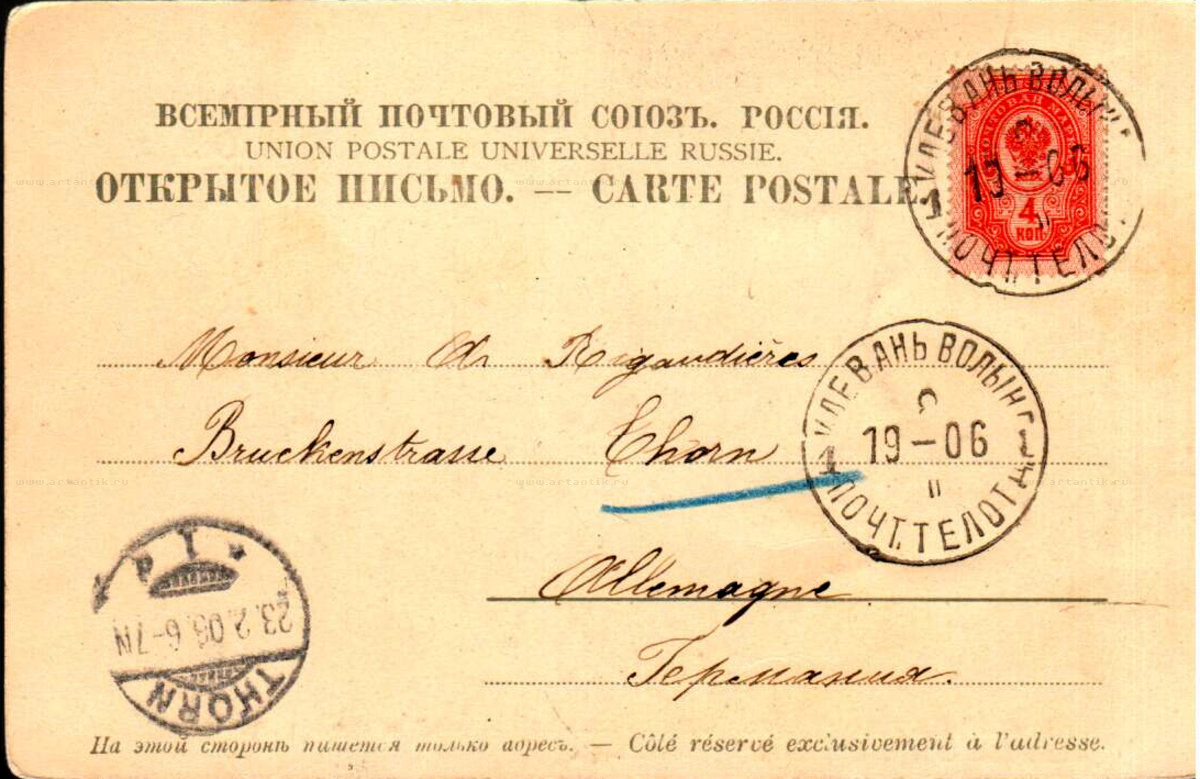 ВСЕМІРНЫЙ ПОЧТОВЫЙ СОЮЗЪ. РОССІЯ.
UNION POSTALE UNIVERSELLE RUSSIE.
ОТКРЫТОЕ ПИСЬМО. — CARTE POSTALE.
КЛЕВАНЬ ВОЛЫН
ПОЧТОВАЯ МАРКА
19-06
4
КОП
1 ПОЧТ. ТЕЛ
Monsieur Rigaudières
Bruckenstrasse Thorn
КЛЕВАНЬ ВОЛЫН
19-06
II
1 ПОЧТ. ТЕЛ. ОТД 1
Allemagne
Германия.
23.2.06. 6-7N
THORN
На этой сторонѣ пишется только адресъ. — Côté réservé exclusivement à l'adresse.
www.artantik.ru